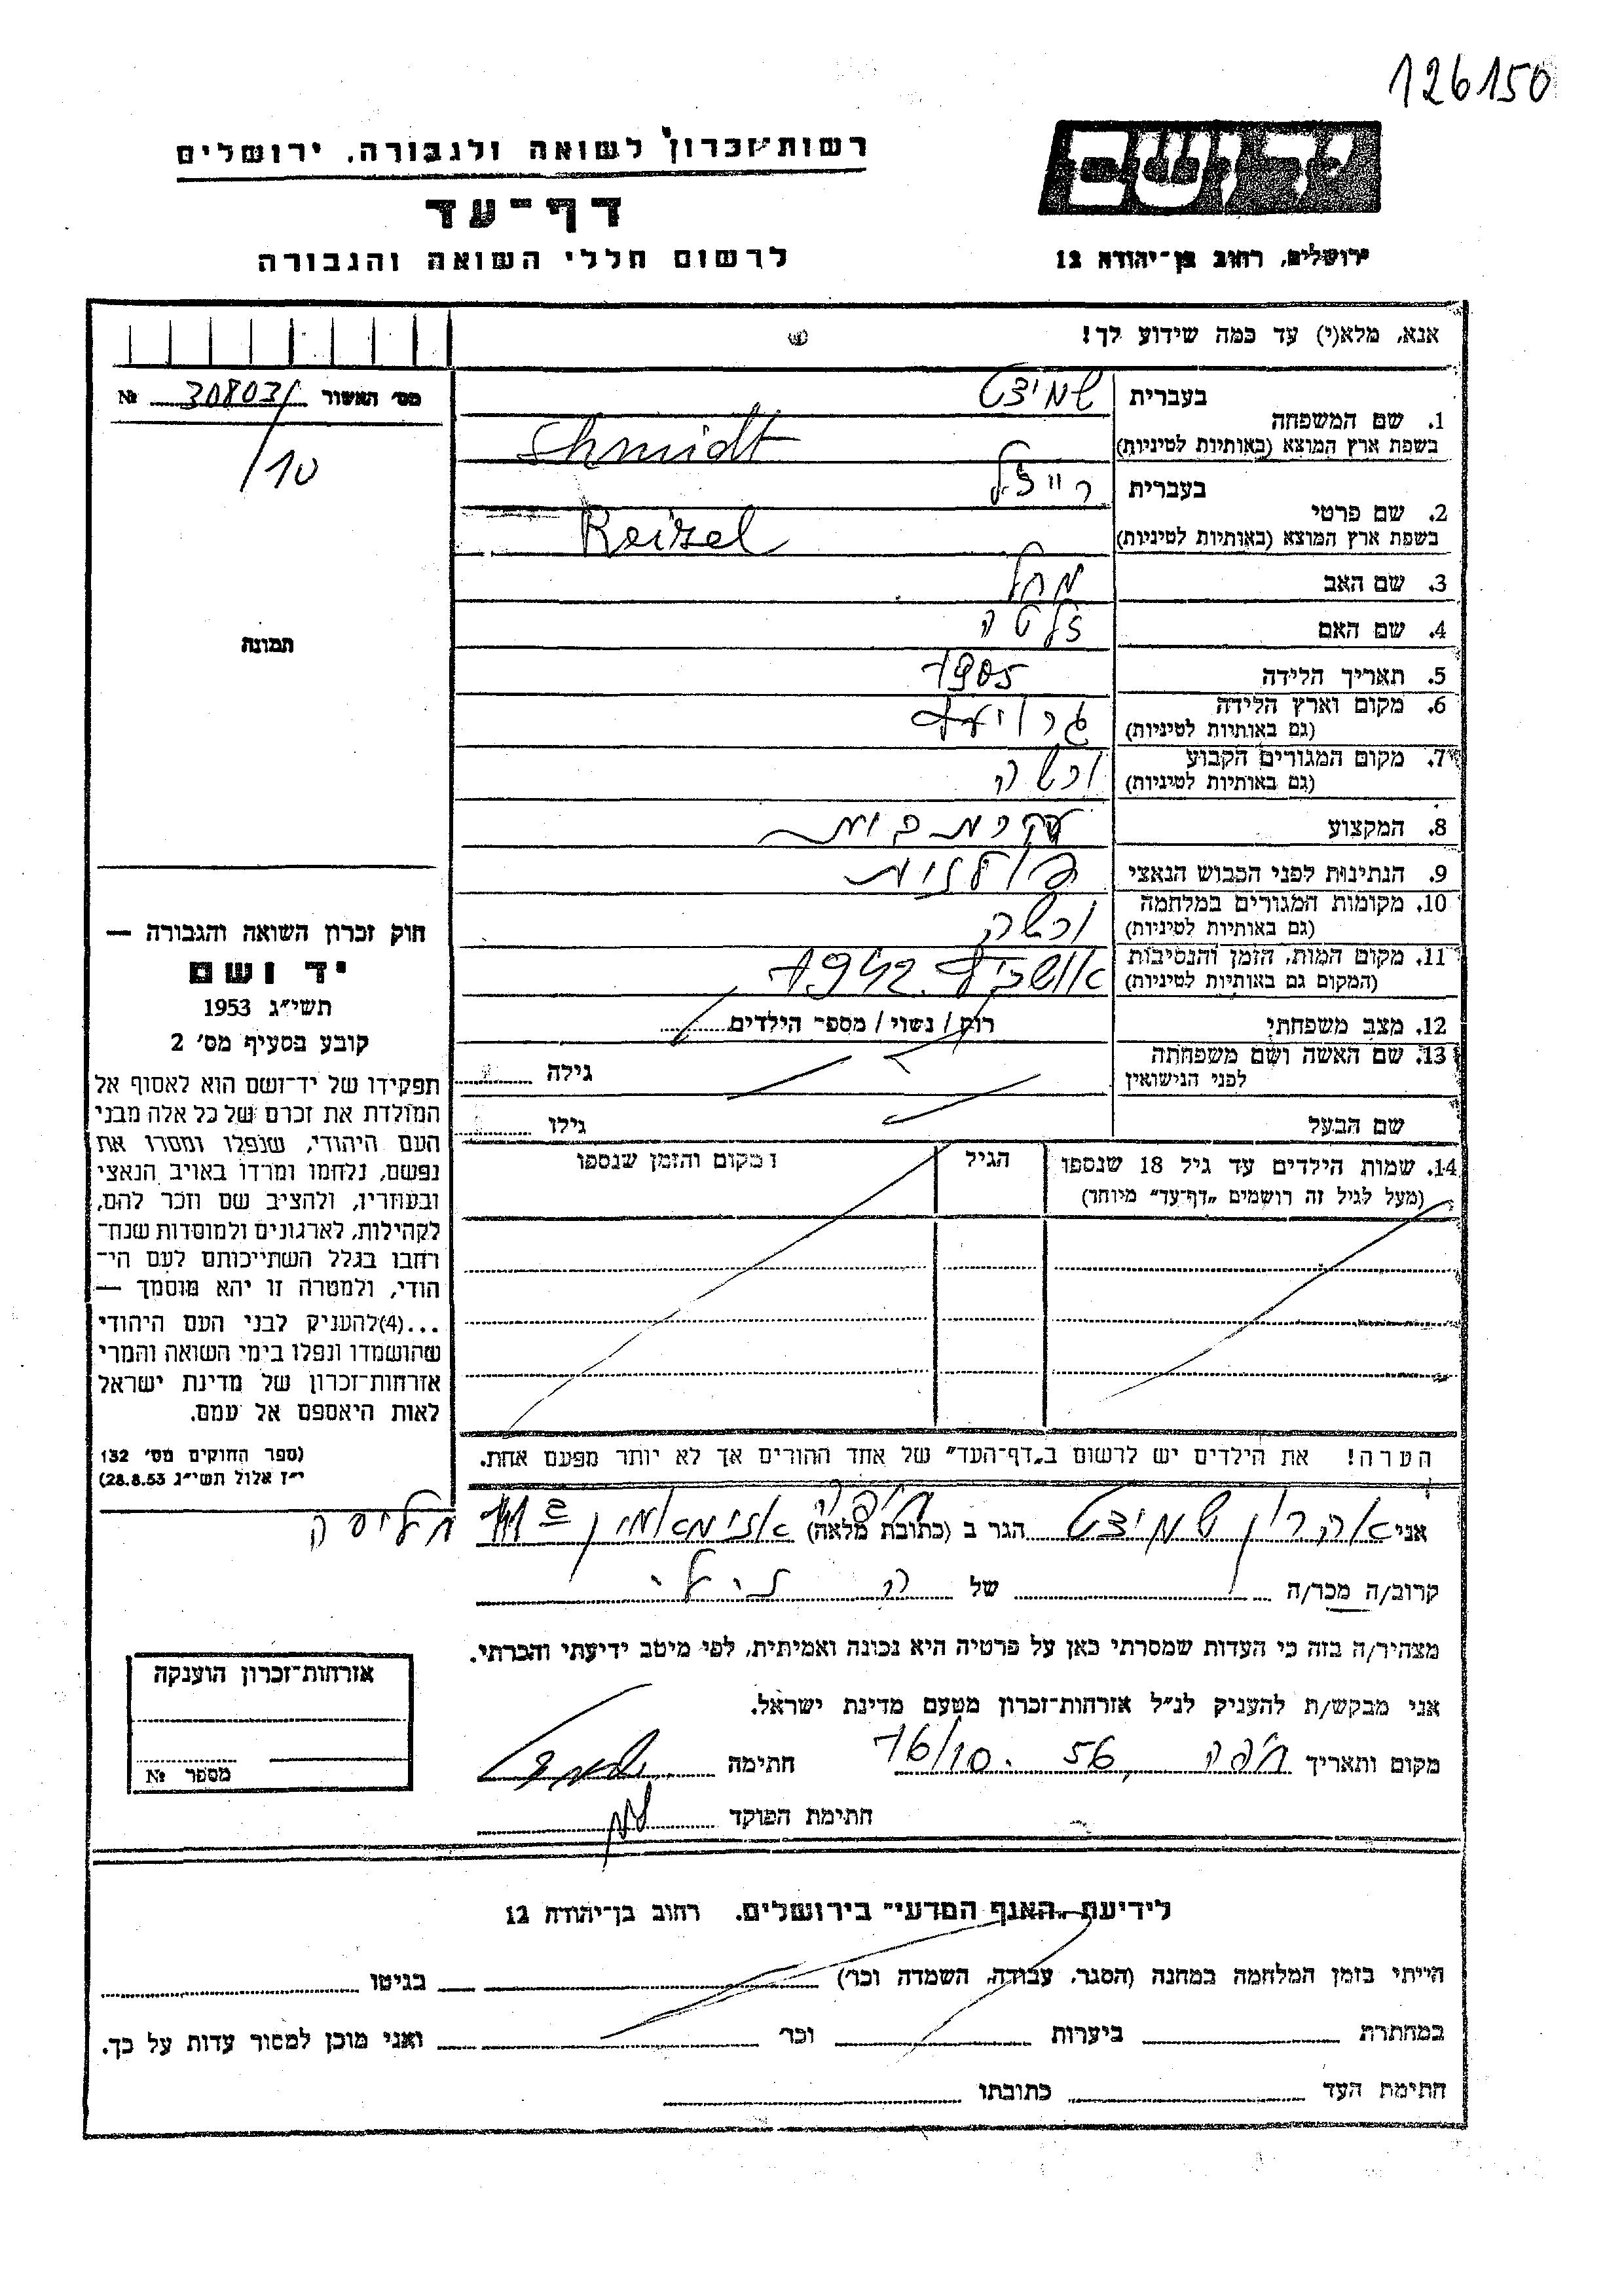 126150
רשות־זכרון לשואה ולגבורה, ירושלים
דף־עד
לרשום חללי השואה והגבורה
יד ושם
ירושלים, רחוב בן־יהודה 12
אנא, מלא(י) עד כמה שידוע לך!
מס׳ האשור 308031 №
/10
תמונה
1. שם המשפחה
בעברית שמידט
בשפת ארץ המוצא (באותיות לטיניות) Schmidt
2. שם פרטי
בעברית רייזל
בשפת ארץ המוצא (באותיות לטיניות) Reizel
3. שם האב
4. שם האם זלטה
5. תאריך הלידה 1905
6. מקום וארץ הלידה
(גם באותיות לטיניות)
7. מקום המגורים הקבוע ורשה
(גם באותיות לטיניות)
8. המקצוע עקרת בית
9. הנתינות לפני הכבוש הנאצי פולנית
10. מקומות המגורים במלחמה ורשה
(גם באותיות לטיניות)
11. מקום המות, הזמן והנסיבות אושביץ 1942
(המקום גם באותיות לטיניות)
12. מצב משפחתי רווק / נשוי / מספר הילדים
13. שם האשה ושם משפחתה לפני הנישואין גילה
שם הבעל גילו
14. שמות הילדים עד גיל 18 שנספו
(מעל לגיל זה רושמים „דף־עד״ מיוחד)
הגיל
מקום והזמן שנספו
הערה! את הילדים יש לרשום ב„דף־העד״ של אחד ההורים אך לא יותר מפעם אחת.
חוק זכרון השואה והגבורה —
יד ושם
תשי״ג 1953
קובע בסעיף מס׳ 2
תפקידו של יד־ושם הוא לאסוף אל
המולדת את זכרם של כל אלה מבני
העם היהודי, שנפלו ומסרו את
נפשם, נלחמו ומרדו באויב הנאצי
ובעוזריו, ולהציב שם וזכר להם,
לקהילות, לארגונים ולמוסדות שנח־
רבו בגלל השתייכותם לעם הי־
הודי, ולמטרה זו יהא מוסמך —
...(4) להעניק לבני העם היהודי
שהושמדו ונפלו בימי השואה והמרי
אזרחות־זכרון של מדינת ישראל
לאות היאספם אל עמם.
(ספר החוקים מס׳ 132
י״ז אלול תשי״ג 28.8.53)
אני אהרון שמידט הגר ב (כתובת מלאה) חיפה
קרוב/ה מכר/ה של
מצהיר/ה בזה כי העדות שמסרתי כאן על פרטיה היא נכונה ואמיתית, לפי מיטב ידיעתי והכרתי.
אני מבקש/ת להעניק לנ״ל אזרחות־זכרון מטעם מדינת ישראל.
מקום ותאריך חיפה, 16/10. 56 חתימה
חתימת הפוקד
אזרחות־זכרון הוענקה
מספר №
לידיעת „האגף המדעי״ בירושלים, רחוב בן־יהודה 12
הייתי בזמן המלחמה במחנה (הסגר, עבודה, השמדה וכר׳) בגיטו
במחתרת ביערות וכר׳ ואני מוכן למסור עדות על כך.
חתימת העד כתובתו